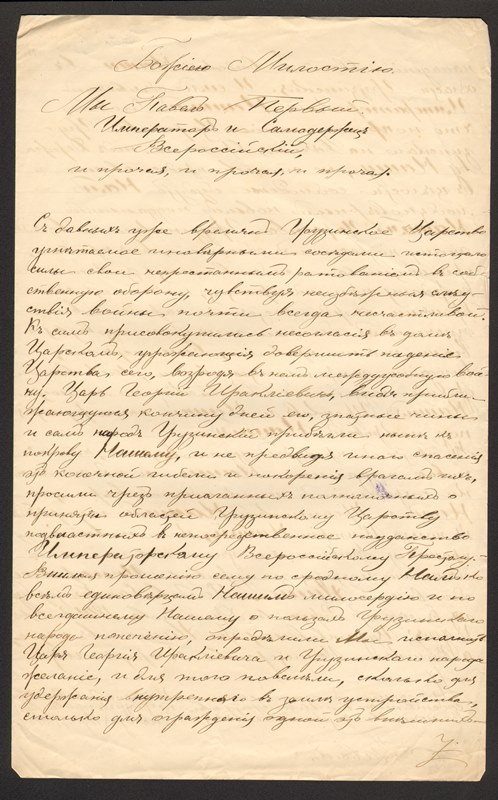 Божіею Милостію.
Мы Павелъ Первый,
Императоръ и Самодержецъ
Всероссійскій,
и прочая, и прочая, и прочая.
Съ давныхъ уже временъ Грузинское Царство
угнѣтаемое иновѣрными сосѣдами истощало
силы свои непрестаннымъ ратованіемъ въ соб-
ственную оборону, чувствуя неизбѣжныя слѣд-
ствія войны почти всегда несчастливой.
Къ симъ присовокупились несогласія въ домѣ
Царскомъ, угрожающія довершить паденіе
Царства сего, возродя въ немъ междуусобную вой-
ну. Царь Георгій Иракліевичъ, видя прибли-
жающуюся кончину дней его, знатные чины
и самъ народъ Грузинскій прибѣгли нынѣ къ
покрову Нашему, и не предвидя инаго спасенія
отъ конечной гибели и покоренія врагамъ ихъ,
просили чрезъ присланныхъ полномочныхъ о
принятіи областей Грузинскому Царству
подвластныхъ въ непосредственное подданство
Императорскому Всероссійскому Престолу.
Внимая прошенію сему по сродному Намъ ко
всѣмъ единовѣрцамъ Нашимъ милосердію и по
всегдашнему Нашему о пользахъ Грузинскаго
народа попеченію, опредѣлили Мы исполнить
Царя Георгія Иракліевича и Грузинскаго народа
желаніе, и для того повелѣли, сколько для
удержанія внутренняго въ землѣ устройства,
столько для огражденія оной отъ внѣшнихъ